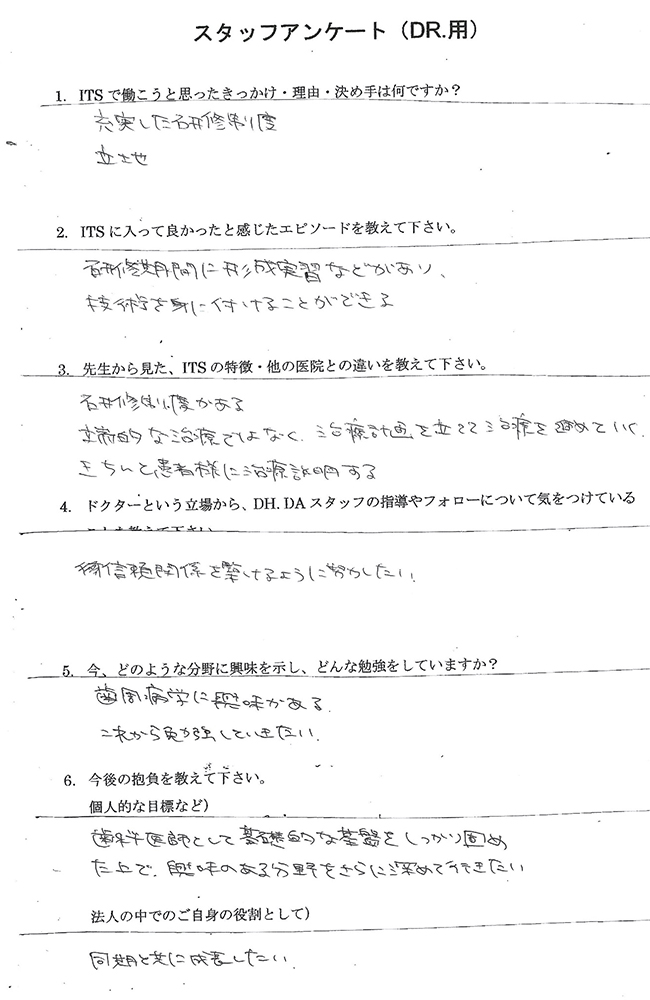 スタッフアンケート（DR.用）
1. ITSで働こうと思ったきっかけ・理由・決め手は何ですか？
充実した研修制度
立地
2. ITSに入って良かったと感じたエピソードを教えて下さい。
研修期間に形成実習などがあり、
技術を身に付けることができる
3. 先生から見た、ITSの特徴・他の医院との違いを教えて下さい。
研修制度がある
的な治療ではなく、治療計画を立てて治療を進めていく
きちんと患者様に治療説明する
4. ドクターという立場から、DH. DAスタッフの指導やフォローについて気をつけている
ことを教えて下さい
信頼関係を築けるように努力したい。
5. 今、どのような分野に興味を示し、どんな勉強をしていますか？
歯周病学に興味がある。
これから勉強していきたい。
6. 今後の抱負を教えて下さい。
個人的な目標など）
歯科医師として基礎的な基盤をしっかり固め
た上で、興味のある分野をさらに深めて行きたい
法人の中でのご自身の役割として）
同期と共に成長したい。